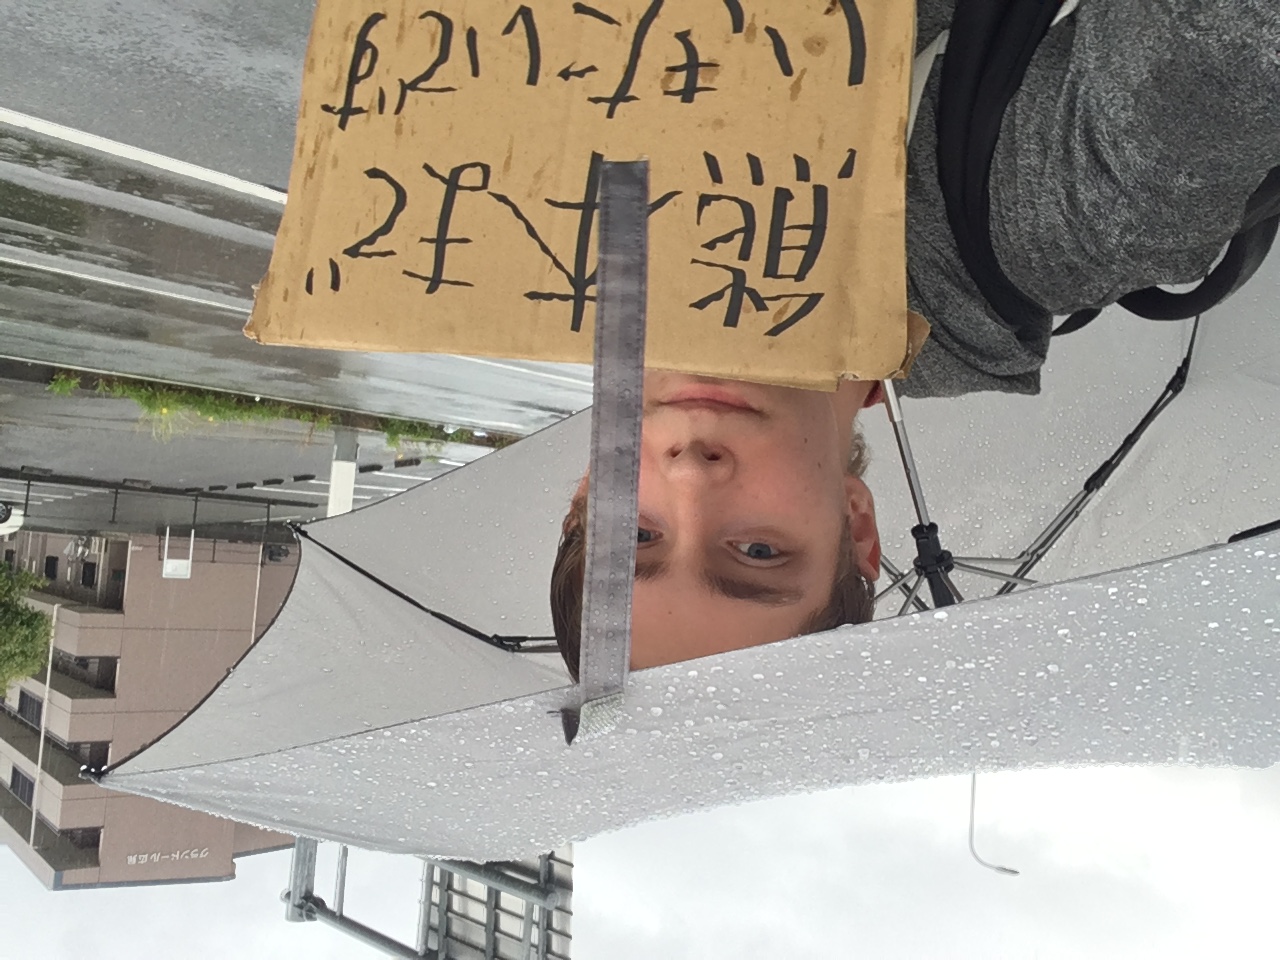 グランドール広見
熊本まで
いきたいです